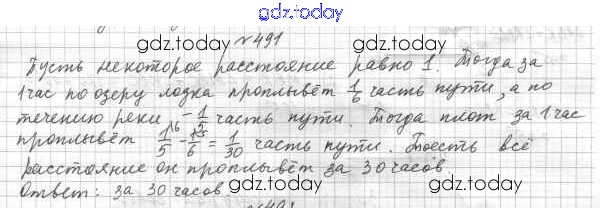 gdz.today
№491
gdz.today gdz.today
Пусть некоторое расстояние равно 1. Тогда за
1 час по озеру лодка проплывёт 1/6 часть пути, а по
течению реки – 1/5 часть пути. Тогда плот за 1 час
проплывёт 1/5 – 1/6 = 1/30 часть пути. Тоесть всё
расстояние он проплывёт за 30 часов.
Ответ: за 30 часов
gdz.today gdz.today
№491